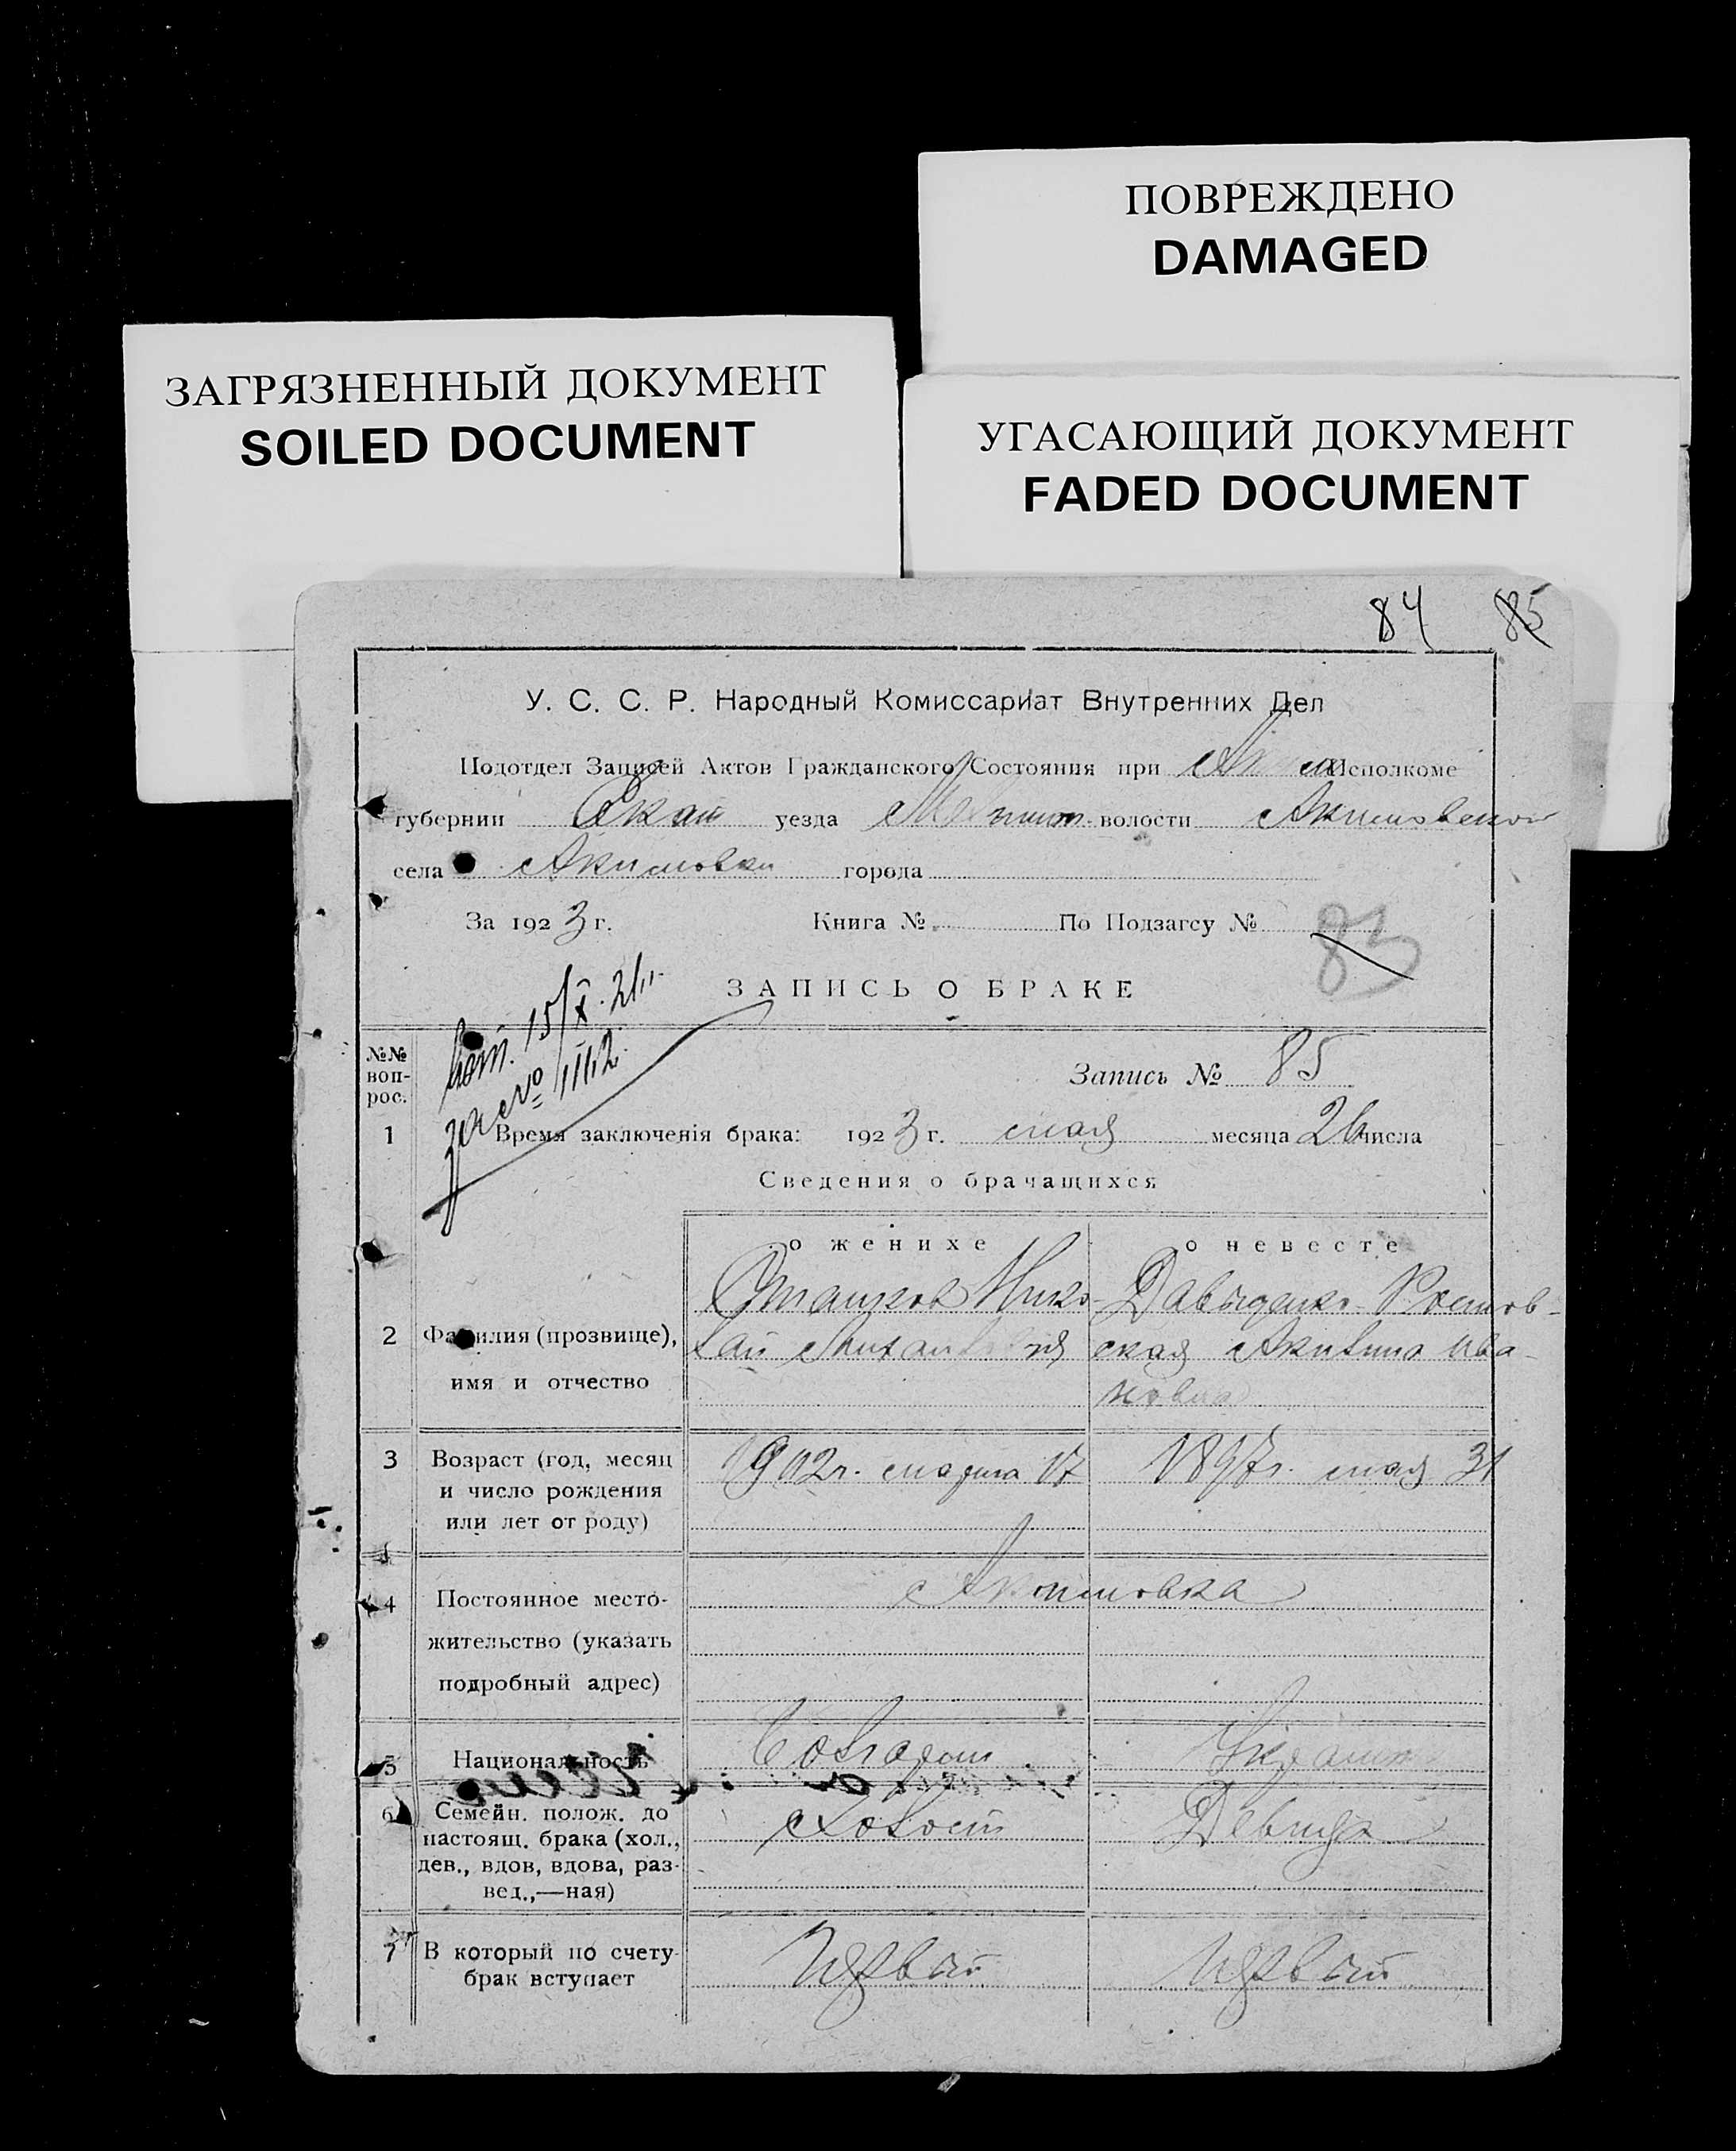 ПОВРЕЖДЕНО
DAMAGED
ЗАГРЯЗНЕННЫЙ ДОКУМЕНТ
SOILED DOCUMENT
УГАСАЮЩИЙ ДОКУМЕНТ
FADED DOCUMENT
84 85
У. С. С. Р. Народный Комиссариат Внутренних Дел
Подотдел Записей Актов Гражданского Состояния при Исполкоме
губернии Екат уезда волости Акимовской
села Акимовки города
За 1923 г. Книга № По Подзагсу № 83
ЗАПИСЬ О БРАКЕ
15/X
№ 1112
№№ воп-рос.
Запись № 85
1 Время заключенія брака: 1923 г. мая месяца 26 числа
Сведения о брачащихся
о женихе о невесте
Нико- Давыденко-Ростов-
2 Фамилия (прозвище), лай ская Акилина Ива-
имя и отчество новна
3 Возраст (год, месяц 1902 г. 17 1897 г. мая 31
и число рождения
или лет от роду)
4 Постоянное место- Акимовка
жительство (указать
подробный адрес)
5 Национальность
6 Семейн. полож. до холост Девица
настоящ. брака (хол.,
дев., вдов, вдова, раз-
вед.,—ная)
7 В который по счету первый первый
брак вступает